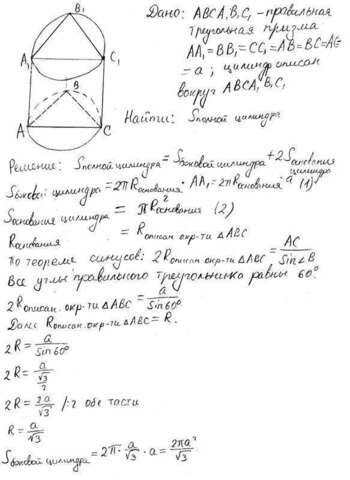 Дано: ABCA₁B₁C₁ - правильная
треугольная призма
AA₁=BB₁=CC₁=AB=BC=AC
=a; цилиндр описан
вокруг ABCA₁B₁C₁
Найти: Sполной цилиндра
B₁
A₁
C₁
B
A
C
Решение: Sполной цилиндра = Sбоковой цилиндра + 2Sоснования цилиндра
Sбоковой цилиндра = 2πRоснования · AA₁ = 2πRоснования · a (1)
Sоснования цилиндра = πR²основания (2)
Rоснования = Rописан. окр-ти ΔABC
По теореме синусов: 2Rописан. окр-ти ΔABC = AC/Sin∠B
Все углы правильного треугольника равны 60°
2Rописан. окр-ти ΔABC = a/Sin60°
Rописан. окр-ти ΔABC = R.
2R = a/Sin60°
2R = a/(√3/2)
2R = 2a/√3 /:2 обе части
R = a/√3
Sбоковой цилиндра = 2π · a/√3 · a = 2πa²/√3